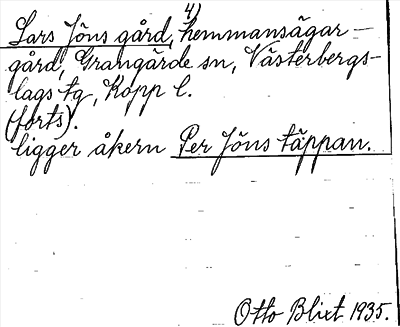 4)
Lars Jöns gård, hemmansägar-
gård, Grangärde sn, Västerbergs-
lags tg, Kopp l.
(forts).
ligger åkern Per Jöns täppan.
Otto Blixt 1935.